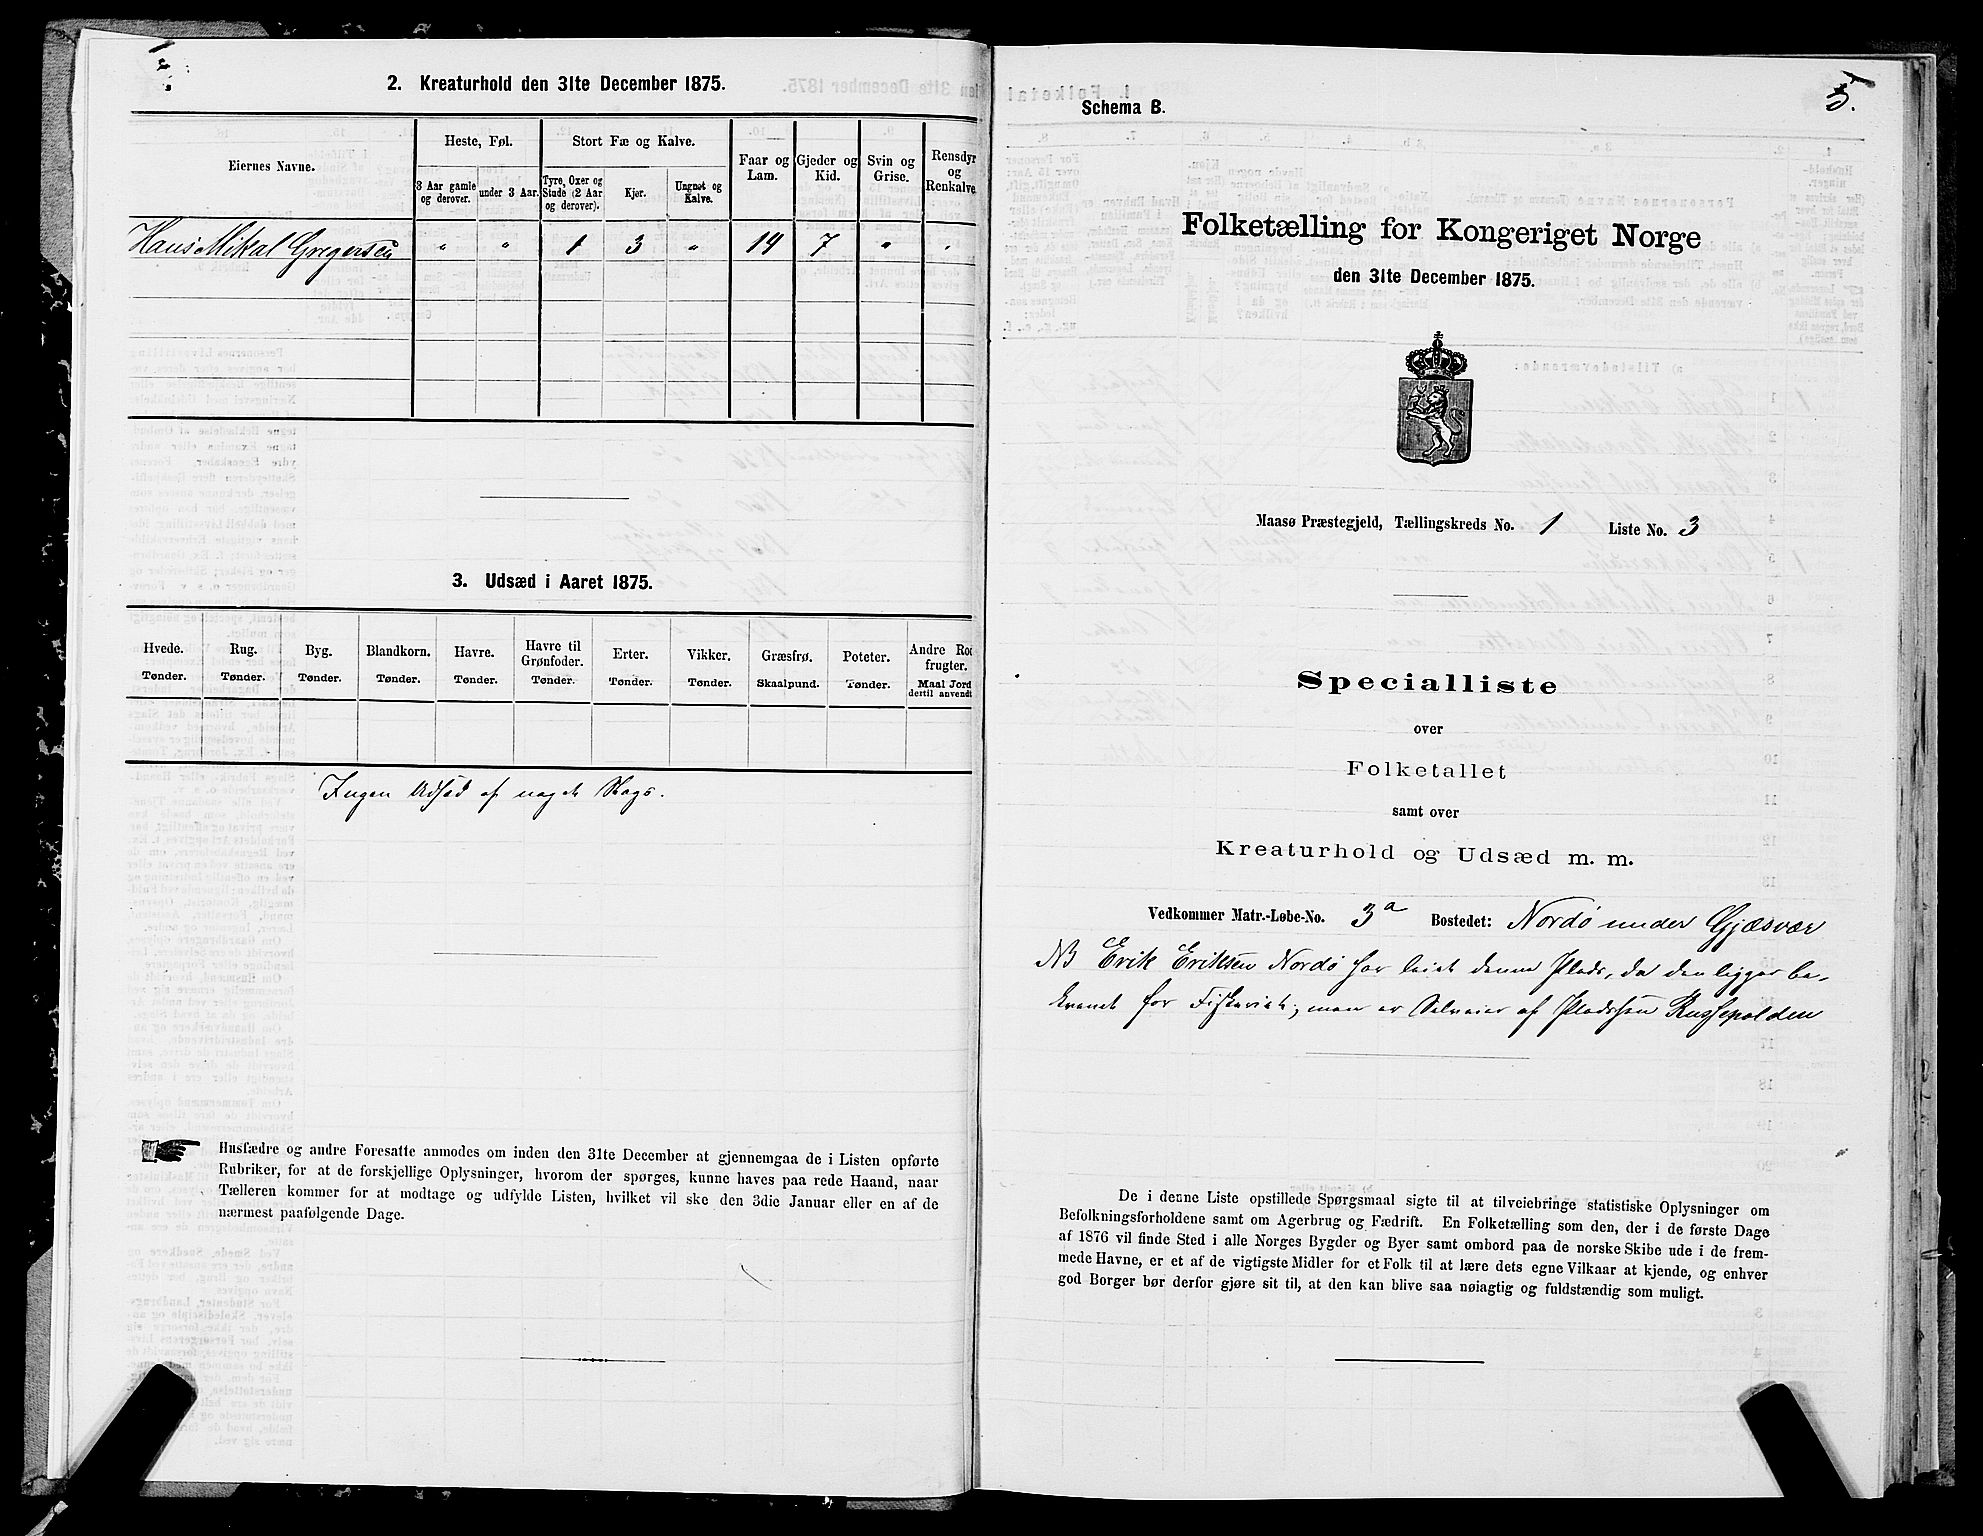 2. Kreaturhold den 31te December 1875.
Eiernes Navne.
Heste, Føl.
Stort Fæ og Kalve.
Faar og Lam.
Gjeder og Kid.
Svin og Grise.
Rensdyr og Renkalve
3 Aar gamle og derover.
under 3 Aar.
Tyre, Oxer og Stude (2 Aar og derover).
Kjør.
Ungnøt og Kalve.
Hans Mikal Gregersen " " 1 3 " 14 7 " "
3. Udsæd i Aaret 1875.
Hvede. Rug. Byg. Blandkorn. Havre. Havre til Grønfoder. Erter. Vikker. Græsfrø. Poteter. Andre Rod frugter.
Tønder. Tønder. Tønder. Tønder. Tønder. Tønder. Tønder. Tønder. Skaalpund. Tønder. Maal Jord dertil anvendt
Ingen Udsæd af noget Slags.
Husfædre og andre Foresatte anmodes om inden den 31te December at gjennemgaa de i Listen opførte
Rubriker, for at de forskjellige Oplysninger, hvorom der spørges, kunne haves paa rede Haand, naar
Tælleren kommer for at modtage og udfylde Listen, hvilket vil ske den 3die Januar eller en af de
nærmest paafølgende Dage.
5.
Schema B.
Folketælling for Kongeriget Norge
den 31te December 1875.
Maasø Præstegjeld, Tællingskreds No. 1 Liste No. 3
Specialliste
over
Folketallet
samt over
Kreaturhold og Udsæd m. m.
Vedkommer Matr.-Løbe-No. 3a Bostedet: Nordø under Gjæsvær
NB Erik Eriksen Nordø har leiet denne Plads, da den ligger be-
kvemt for Fiskeriet; men er Selveier af Pladssen Russepolden
De i denne Liste opstillede Spørgsmaal sigte til at tilveiebringe statistiske Oplysninger om
Befolkningsforholdene samt om Agerbrug og Fædrift. En Folketælling som den, der i de første Dage
af 1876 vil finde Sted i alle Norges Bygder og Byer samt ombord paa de norske Skibe ude i de frem-
mede Havne, er et af de vigtigste Midler for et Folk til at lære dets egne Vilkaar at kjende, og enhver
god Borger bør derfor gjøre sit til, at den kan blive saa nøiagtig og fuldstændig som muligt.